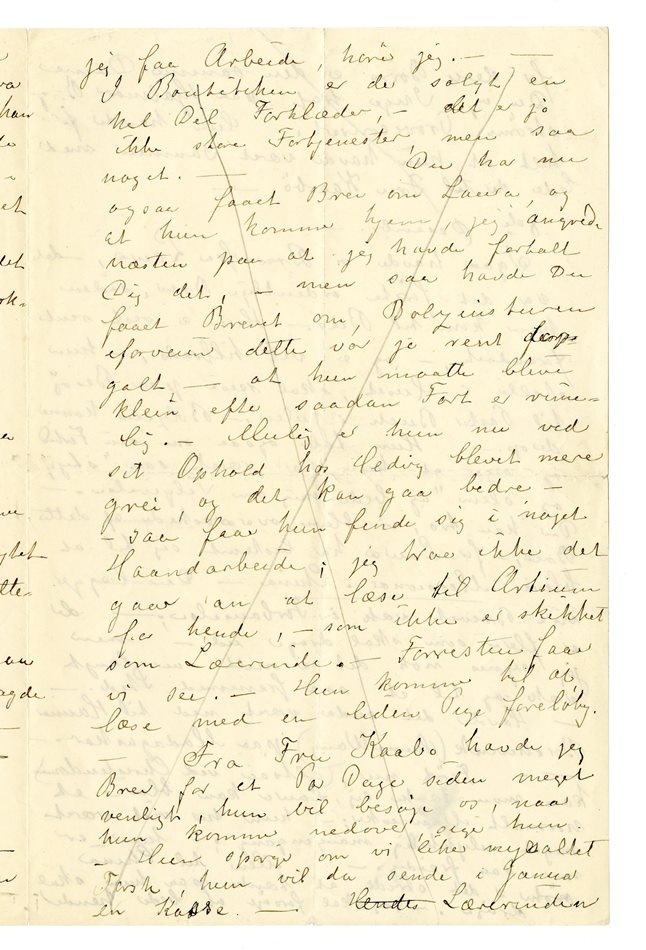 jeg faa Arbeide, hører jeg. — —
I Boutikken er der solgt en
hel Del Forklæder, — det er jo
ikke store Fortjenester, men saa
noget. — Du har nu
ogsaa faaet Brev om Laura, og
at hun kommer hjem, jeg angrede
næsten paa at jeg havde fortalt
Dig det, — men saa havde Du
faaet Brevet om,
iforveien dette var jo rent
galt, — at hun maatte blive
klein efter saadan Fart er rime-
lig. — Mulig er hun nu ved
sit Ophold hos Hedvig blevet mere
grei, og det kan gaa bedre —
— saa faar hun finde sig i noget
Haandarbeide; jeg tror ikke det
gaar an at læse til Artium
for hende, — som ikke er skikket
som Lærerinde. — Forresten faar
vi see. — Hun kommer til at
læse med en liden Pige foreløbig.
— Fra Fru Kaabo havde jeg
Brev for et Par Dage siden meget
venligt, hun vil besøge os, naar
hun kommer nedover, siger hun.
— Hun spørger om vi liker nysaltet
Torsk, hun vil da sende i Januar
en Kasse. — Hendes Lærerinden